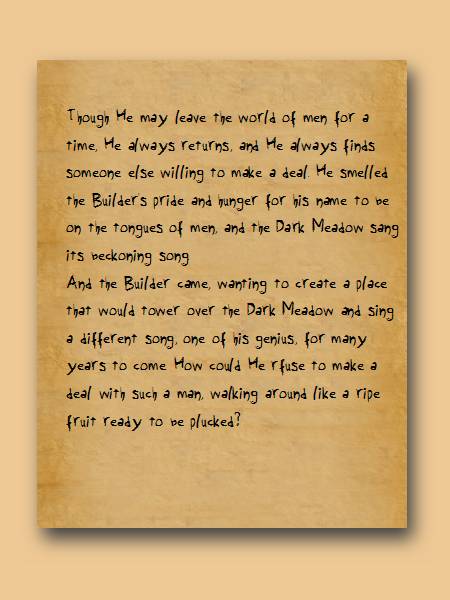 Though He may leave the world of men for a
time, He always returns, and He always finds
someone else willing to make a deal. He smelled
the Builder's pride and hunger for his name to be
on the tongues of men, and the Dark Meadow sang
its beckoning song
And the Builder came, wanting to create a place
that would tower over the Dark Meadow and sing
a different song, one of his genius, for many
years to come How could He rfuse to make a
deal with such a man, walking around like a ripe
fruit ready to be plucked?